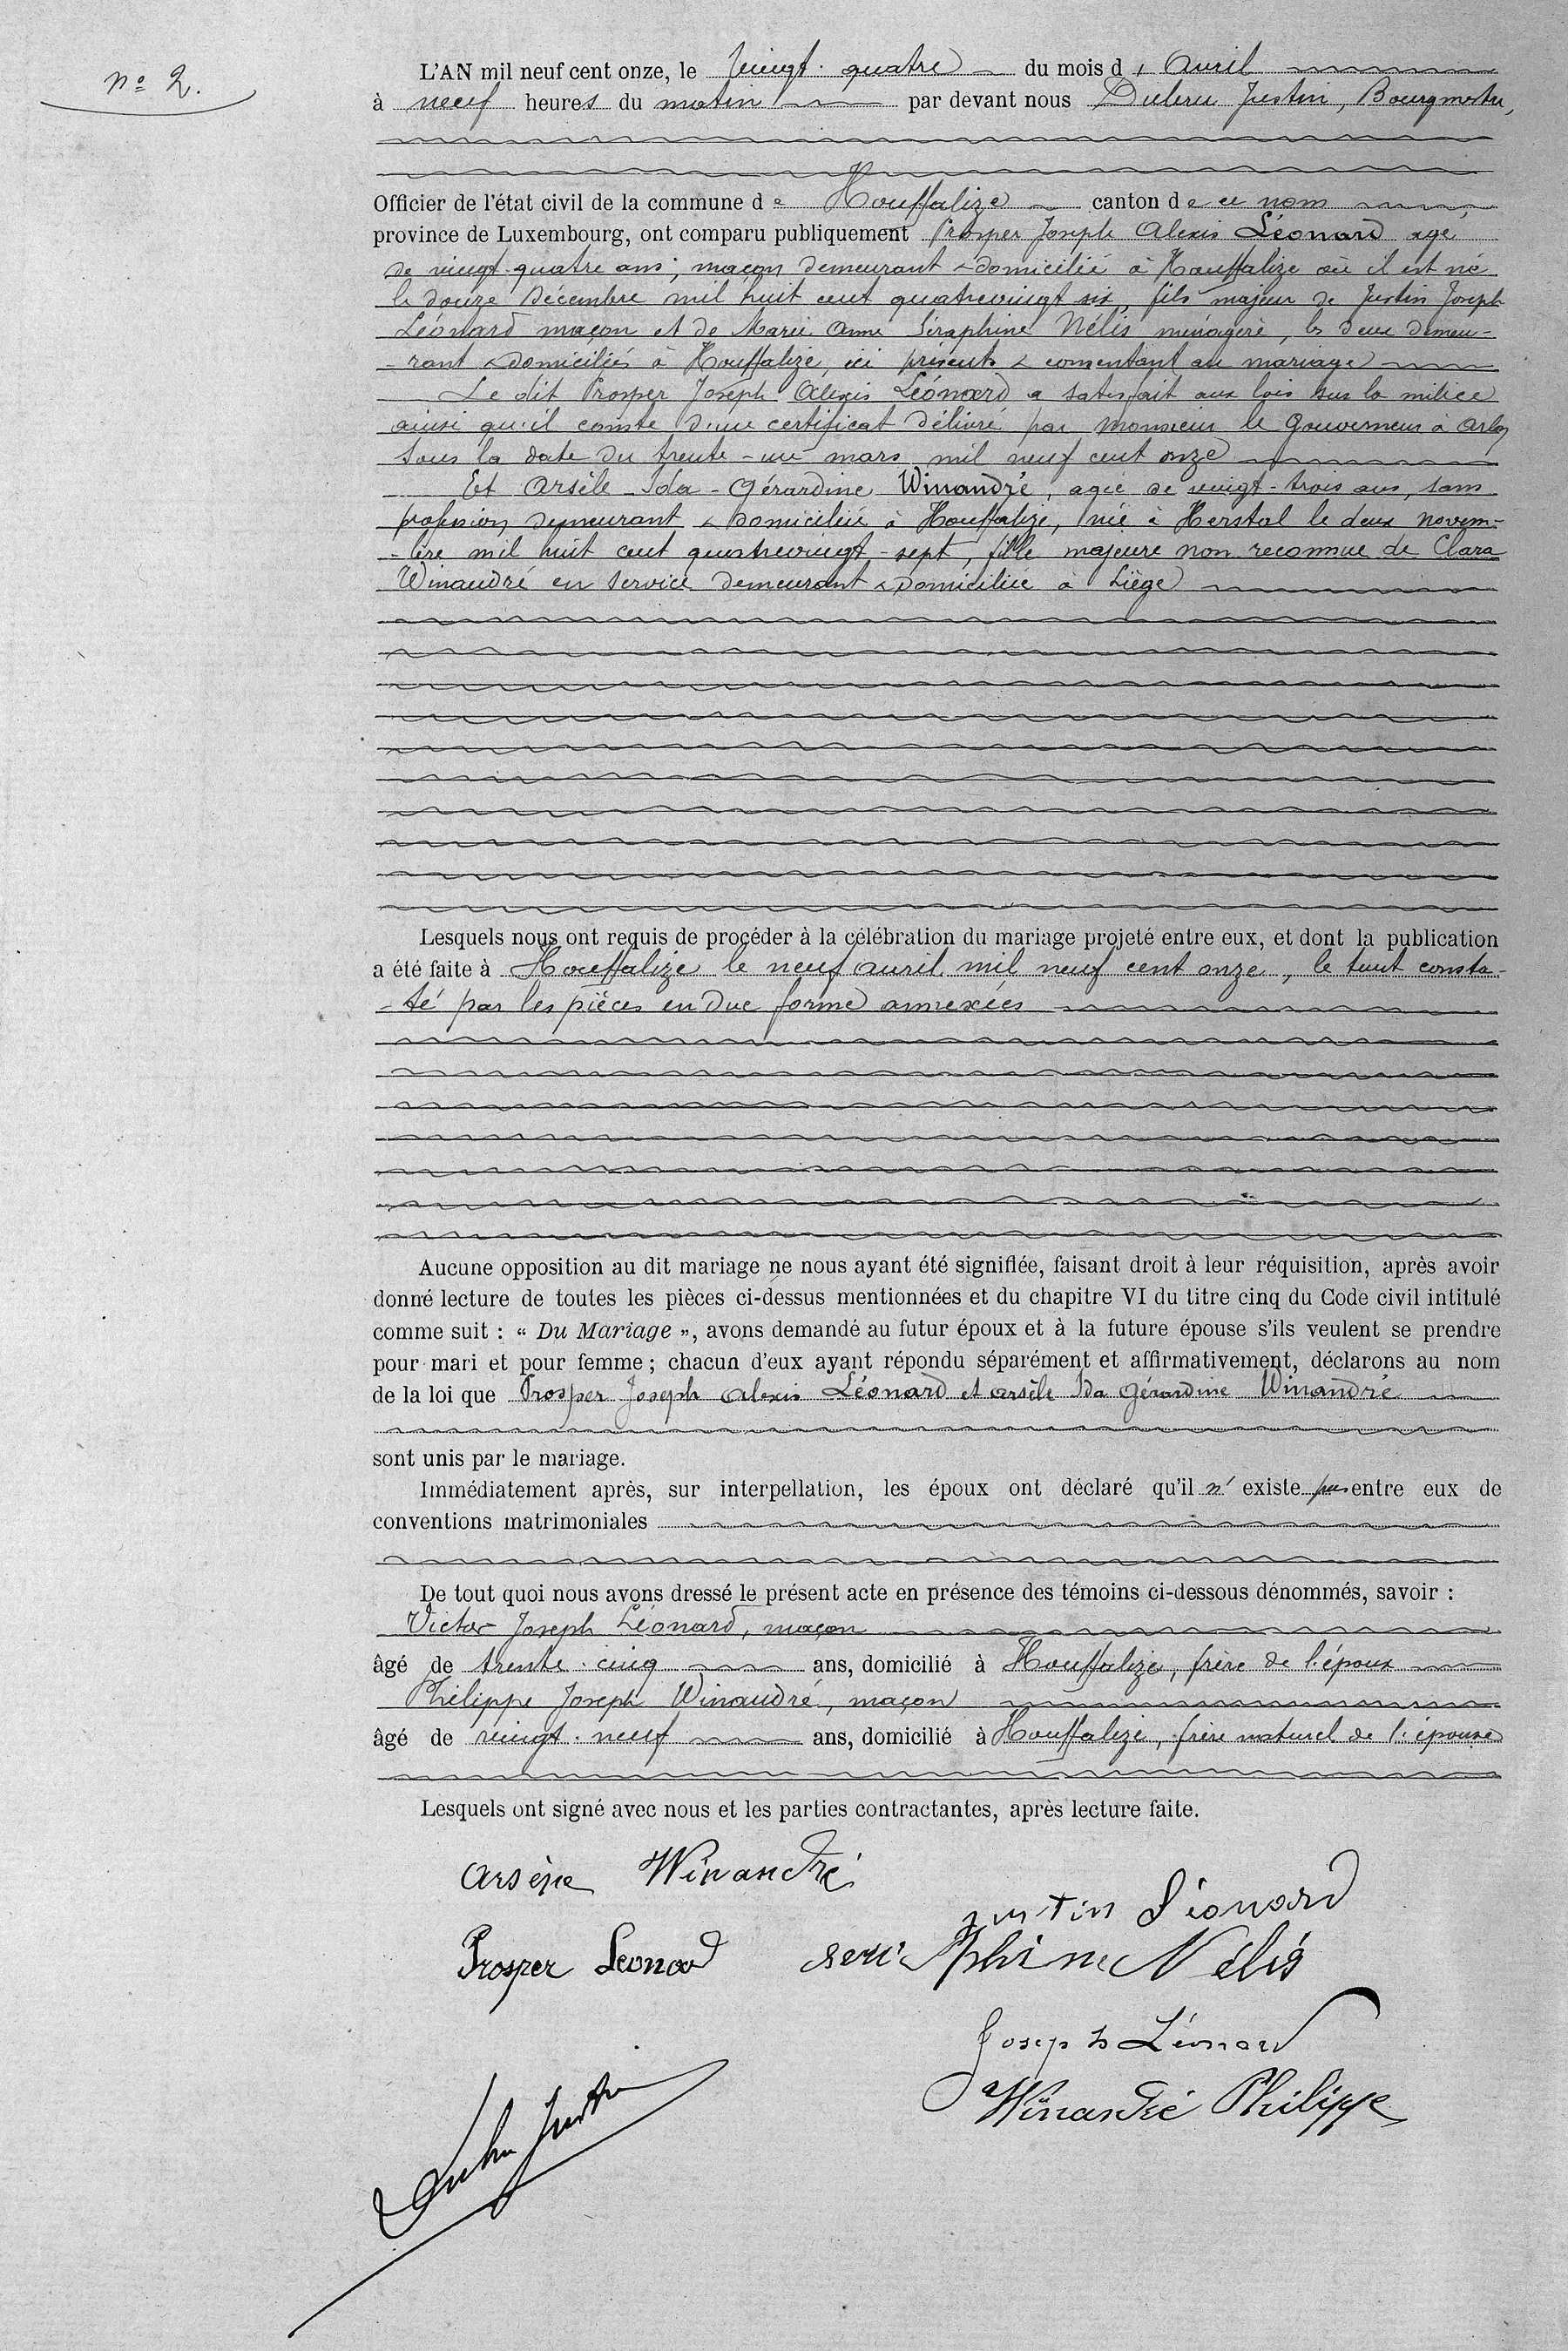 nº 2.
L'AN mil neuf cent onze, le vingt-quatre du mois d'Avril
à neuf heures du matin par devant nous Dubru Justin, Bourgmestre,
Officier de l'état civil de la commune de Houffalize canton de ce nom,
province de Luxembourg, ont comparu publiquement Prosper Joseph Alexis Léonard agé
de vingt-quatre ans, maçon demeurant & domicilié à Houffalize où il est né
le douze Décembre mil huit cent quatrevingt six, fils majeur de Justin Joseph
Léonard maçon et de Marie Anne Séraphine Nélis ménagère, les deux demeu-
-rant & domiciliés à Houffalize, ici présents & consentant au mariage
Le dit Prosper Joseph Alexis Léonard a satisfait aux lois sur la milice
ainsi qu'il conste d'un certificat délivré par Monsieur le Gouverneur à Arlon
sous la date du trente-un mars mil neuf cent onze
Et Arsèle-Ida-Gérardine Winandré, agée de vingt-trois ans, sans
profession, demeurant & domiciliée à Houffalize, née à Herstal le deux novem-
-bre mil huit cent quatrevingt-sept, fille majeure non reconnue de Clara
Winandré en service demeurant & domiciliée à Liège
Lesquels nous ont requis de procéder à la célébration du mariage projeté entre eux, et dont la publication
a été faite à Houffalize le neuf avril mil neuf cent onze, le tout consta-
-té par les pièces en due forme annexées
Aucune opposition au dit mariage ne nous ayant été signifiée, faisant droit à leur réquisition, après avoir
donné lecture de toutes les pièces ci-dessus mentionnées et du chapitre VI du titre cinq du Code civil intitulé
comme suit : « Du Mariage », avons demandé au futur époux et à la future épouse s'ils veulent se prendre
pour mari et pour femme ; chacun d'eux ayant répondu séparément et affirmativement, déclarons au nom
de la loi que Prosper Joseph Alexis Léonard et Arsèle Ida Gérardine Winandré
sont unis par le mariage.
Immédiatement après, sur interpellation, les époux ont déclaré qu'il n'existe pas entre eux de
conventions matrimoniales
De tout quoi nous avons dressé le présent acte en présence des témoins ci-dessous dénommés, savoir :
Victor Joseph Léonard, maçon
âgé de trente-cinq ans, domicilié à Houffalize, frère de l'époux
Philippe Joseph Winandré, maçon
âgé de vingt-neuf ans, domicilié à Houffalize, frère naturel de l'épouse
Lesquels ont signé avec nous et les parties contractantes, après lecture faite.
Arsène Winandré
Justin Léonard
Prosper Léonard
Nélis
Joseph Léonard
Winandré Philippe
Justin